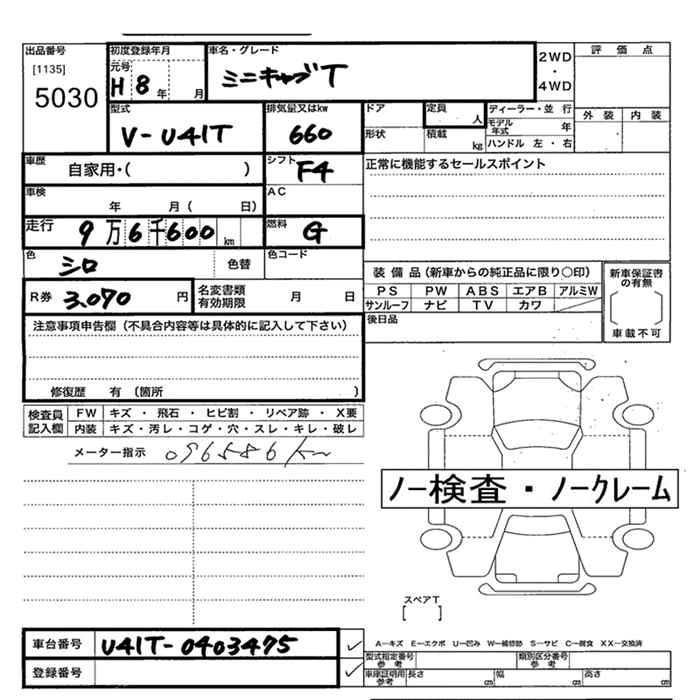 出品番号
[1135]
5030
初度登録年月
元号
H 8 年 月
車名・グレード
ミニキャブT
2WD
・
4WD
評価点
外装 内装
型式
V-U41T
排気量又はkw
660
ドア
形状
定員
人
積載
kg
ディーラー・並行
モデル年式 年
ハンドル 左・右
車歴
自家用・( )
シフト
F4
正常に機能するセールスポイント
車検
年 月( 日)
AC
走行
9万6千600km
燃料
G
色
シロ
色替
色コード
R券
3,070円
名変書類
有効期限
月 日
装備品(新車からの純正品に限り○印)
PS PW ABS エアB アルミW
サンルーフ ナビ TV カワ
新車保証書
の有無
車載不可
後日品
注意事項申告欄(不具合内容等は具体的に記入して下さい)
修復歴 有(箇所 )
検査員
記入欄
FW キズ・飛石・ヒビ割・リペア跡・X要
内装 キズ・汚レ・コゲ・穴・スレ・キレ・破レ
メーター指示 096586km
ノー検査・ノークレーム
スペアT
[ ]
車台番号
U41T-0403475
登録番号
A―キズ E―エクボ U―凹み W―補修跡 S―サビ C―腐食 XX―交換済
型式指定番号
参考
類別区分番号
参考
車庫証明用
参考
長さ cm
幅 cm
高さ cm